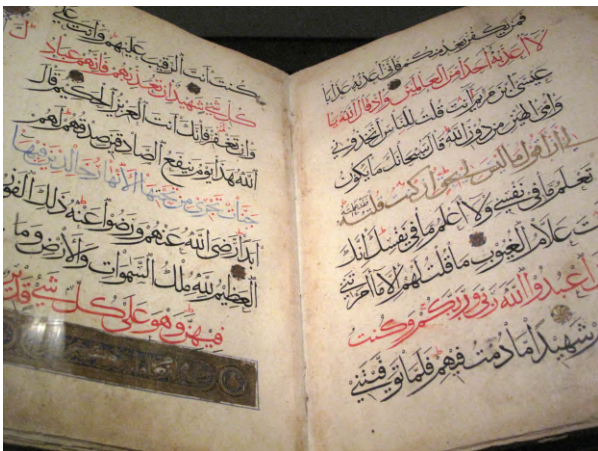 فمن يكفر بعد منكم فاني اعذبه عذابا
لا أعذبه أحدا من العالمين واذ قال الله يا
عيسى ابن مريم أنت قلت للناس اتخذوني
وأمي الهين من دون الله قال سبحانك ما يكون
لي أن أقول ما ليس لي بحق ان كنت قلته
تعلم ما في نفسي ولا أعلم ما في نفسك انك
علام الغيوب ما قلت لهم الا ما أمرتني
اعبدوا الله ربي وربكم وكنت
شهيدا ما دمت فيهم فلما توفيتني
كنت أنت الرقيب عليهم وأنت على
كل شيء شهيد ان تعذبهم فانهم عباد
وان تغفر فانك أنت العزيز الحكيم قال
الله هذا يوم ينفع الصادقين صدقهم لهم
جنات تجري من تحتها الأنهار خالدين فيها
أبدا رضي الله عنهم ورضوا عنه ذلك الفوز
العظيم لله ملك السموات والأرض وما
فيهن وهو على كل شيء قدير